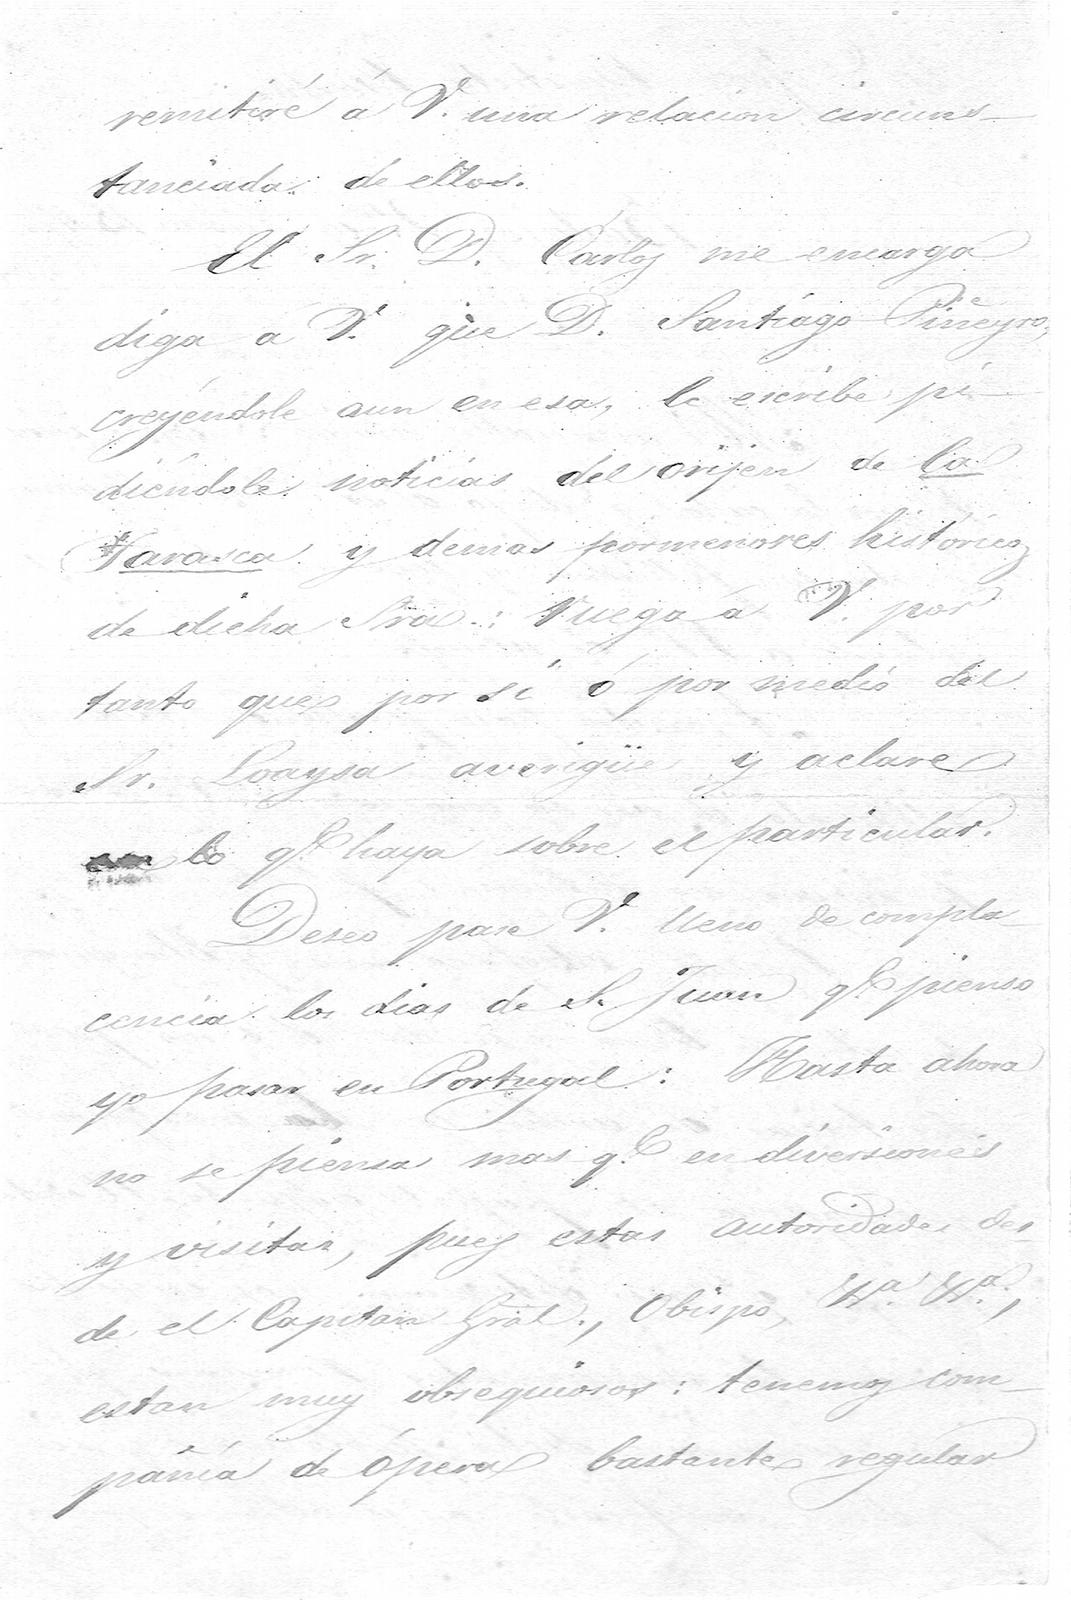 remitiré á V. una relacion circuns-
tanciada de ellos.
El Sr. D. Carlos me encarga
diga á V. que D. Santiago Piñeyro,
creyéndole aun en esa, le escribe pi-
diéndole noticias del orijen de la
Tarasca y demas pormenores históricos
de dicha Sra.: ruego á V. por
tanto que por sí ó por medio del
Sr. Loaysa averigüe y aclare
lo qe. haya sobre el particular.
Deseo pase V. lleno de compla-
cencia los dias de S. Juan qe. pienso
yo pasar en Portugal: Hasta ahora
no se piensa mas qe. en diversiones
y visitas, pues estas autoridades des-
de el Capitan Gral., Obispo, &a. &a.,
estan muy obsequiosos: tenemos com-
pañía de ópera bastante regular